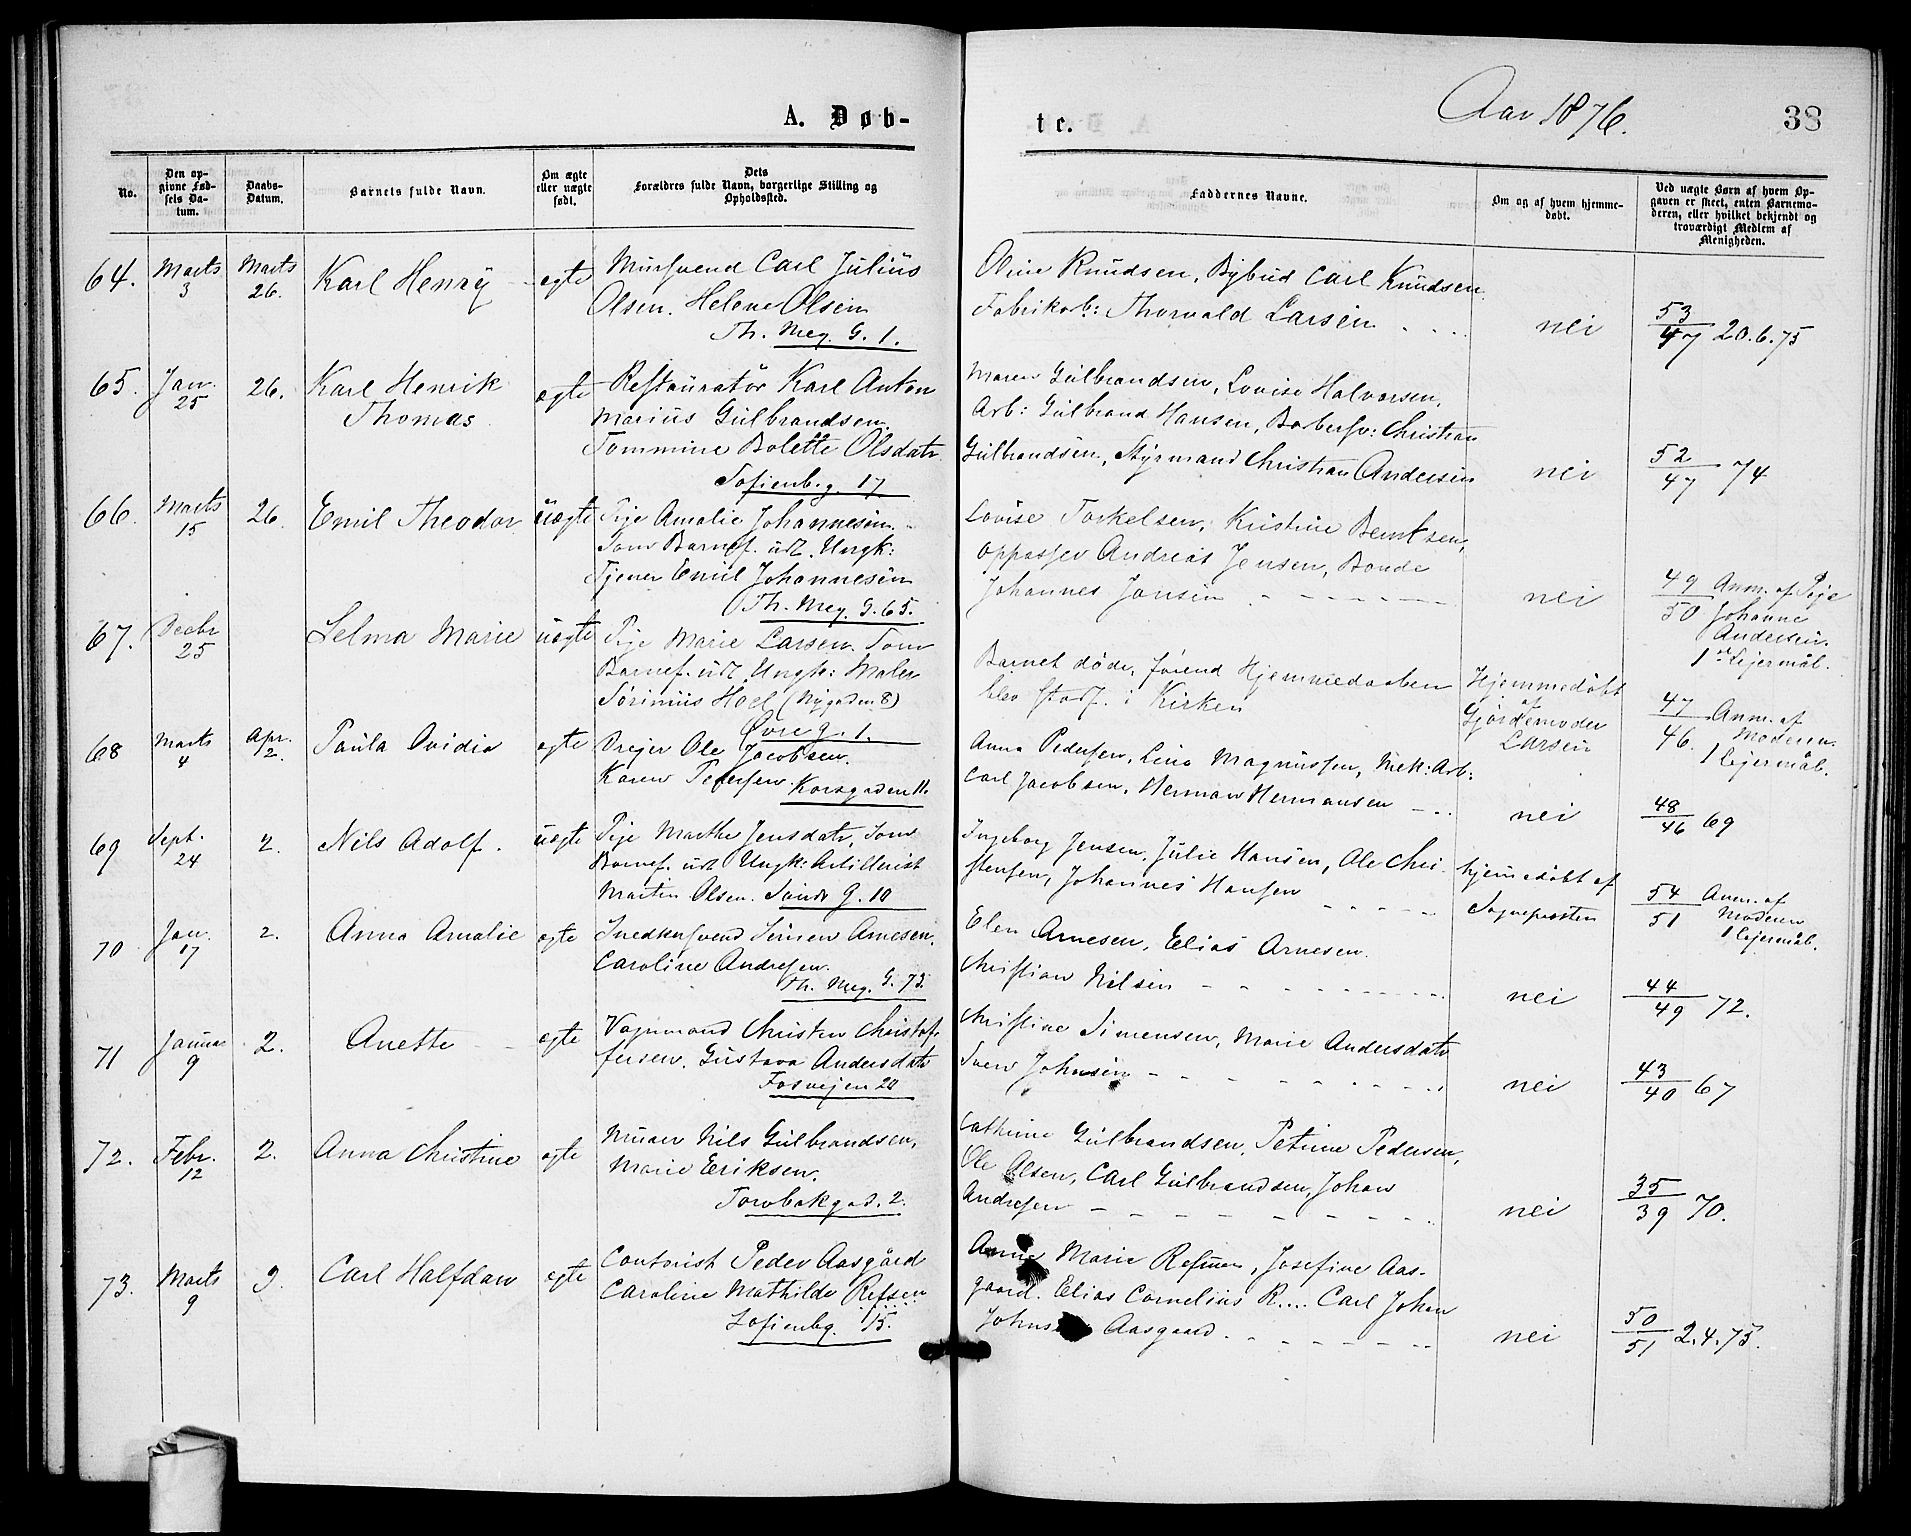 A. Døb-
No.
Den op-
givne Fød-
sels Da-
tum.
Daabs-
Datum.
Barnets fulde Navn.
Om ægte
eller uægte
født.
Dets
Forældres fulde Navn, borgerlige Stilling og
Opholdssted.
64. Marts 3 Marts 26. Karl Henry ægte Mursvend Carl Julius
Olsen. Helene Olsen
Th. Mey. G. 1.
65. Jan. 25 26. Karl Henrik ægte Restauratør Karl Anton
Thomas Marius Gulbrandsen.
Tommine Bolette Olsdatr.
Sofienbg. 17
66. Marts 15 26. Emil Theodor uægte Pige Amalie Johannesen.
Som Barnef. udl. Ungk:
Tjener Emil Johannesen
Th. Mey. G. 65.
67. Decbr 25 Selma Marie uægte Pige Marie Larsen. Som
Barnef. udl. Ungk: Maler
Sørinius Hoel (Nygaden 8)
Øvre g. 1.
68 Marts 4 Apr. 2. Paula Ovidia ægte Drejer Ole Jacobsen.
Karen Pedersen. Korsgaden 11.
69 Sept. 24 2. Nils Adolf. uægte Pige Marthe Jensdatr, Som
Barnef. udl Ungk: Artillerist
Martin Olsen. Søndr G. 10
70 Jan. 17 2. Anna Amalie ægte Snedkersvend Simen Arnesen.
Caroline Andresen.
Th. Mey. G. 73.
71 Januar 9 2. Anette ægte Vognmand Christen Christof-
fersen. Gustava Andersdatr
Fosvejen 20
72. Febr. 12 2. Anna Christine ægte Murer Nils Gulbrandsen,
Marie Eriksen.
Torvbakgad. 2.
73. Marts 9 9. Carl Halfdan ægte Contorist Peder Aasgård
Caroline Mathilde Refsen
Sofienbg. 15.
t c.
Aar 1876.
38
Faddernes Navne.
Om og af hvem hjemme-
døbt.
Ved uægte Børn af hvem Op-
gaven er skeet, enten Barnemo-
deren, eller hvilket bekjendt og
troværdigt Medlem af
Menigheden.
Oline Knudsen, Bybud Carl Knudsen
Fabrikarb: Thorvald Larsen nei 53/47 20.6.75
Maren Gulbrandsen, Lovise Halvorsen,
Arb: Gulbrand Hansen, Barbersv: Christian
Gulbrandsen, Styrmand Christian Andersen nei 52/47 74
Lovise Torkelsen, Kristine Berntsen,
Oppasser Andreas Jensen, Bonde
Johannes Jonsen nei 49/50 Anm. af Pige
Johanne
Andersen.
1ste Lejermål.
Barnet døde, førend Hjemmedaaben
blev stadf. i Kirken
Hjemmedøbt
af
Gjordemoder
Larsen
47/46. Anm. af
Moderen.
1 Lejermål.
Anna Pedersen, Lina Magnussen, Mek: Arb:
Carl Jacobsen, Herman Hermansen nei 48/46 69
Ingeborg Jensen, Julie Hansen, Ole Chri-
stensen, Johannes Hansen
hjemedøbt af
Sognepresten
54/51 Anm. af
Moderen
1 Lejermål.
Elen Arnesen, Elias Arnesen.
Christian Nilsen nei 44/49 72.
Christine Simensen, Marie Andersdatr
Sven Johnsen nei 43/40 67
Cathrine Gulbrandsen, Petrine Pedersen,
Ole Olsen, Carl Gulbrandsen, Johan
Andresen nei 35/39 70.
Anne Marie Refsnes, Josefine Aas-
gaard. Elias Cornelius R.... Carl Johan
Aasgaard. nei 50/51 2.4.75.